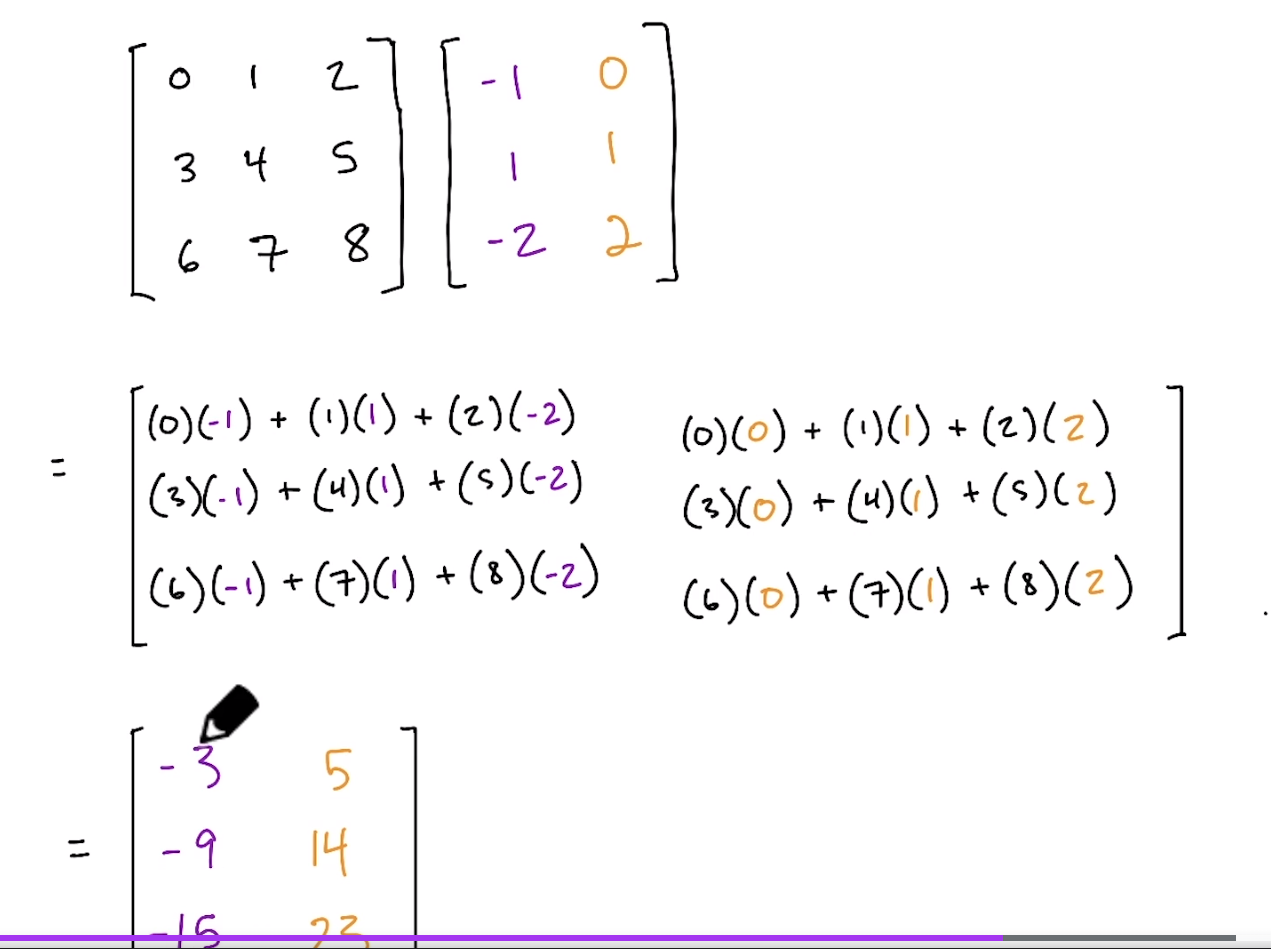 0 1 2 -1 0
3 4 5 1 1
6 7 8 -2 2
(0)(-1) + (1)(1) + (2)(-2) (0)(0) + (1)(1) + (2)(2)
= (3)(-1) + (4)(1) + (5)(-2) (3)(0) + (4)(1) + (5)(2)
(6)(-1) + (7)(1) + (8)(-2) (6)(0) + (7)(1) + (8)(2) .
-3 5
= -9 14
-15 23